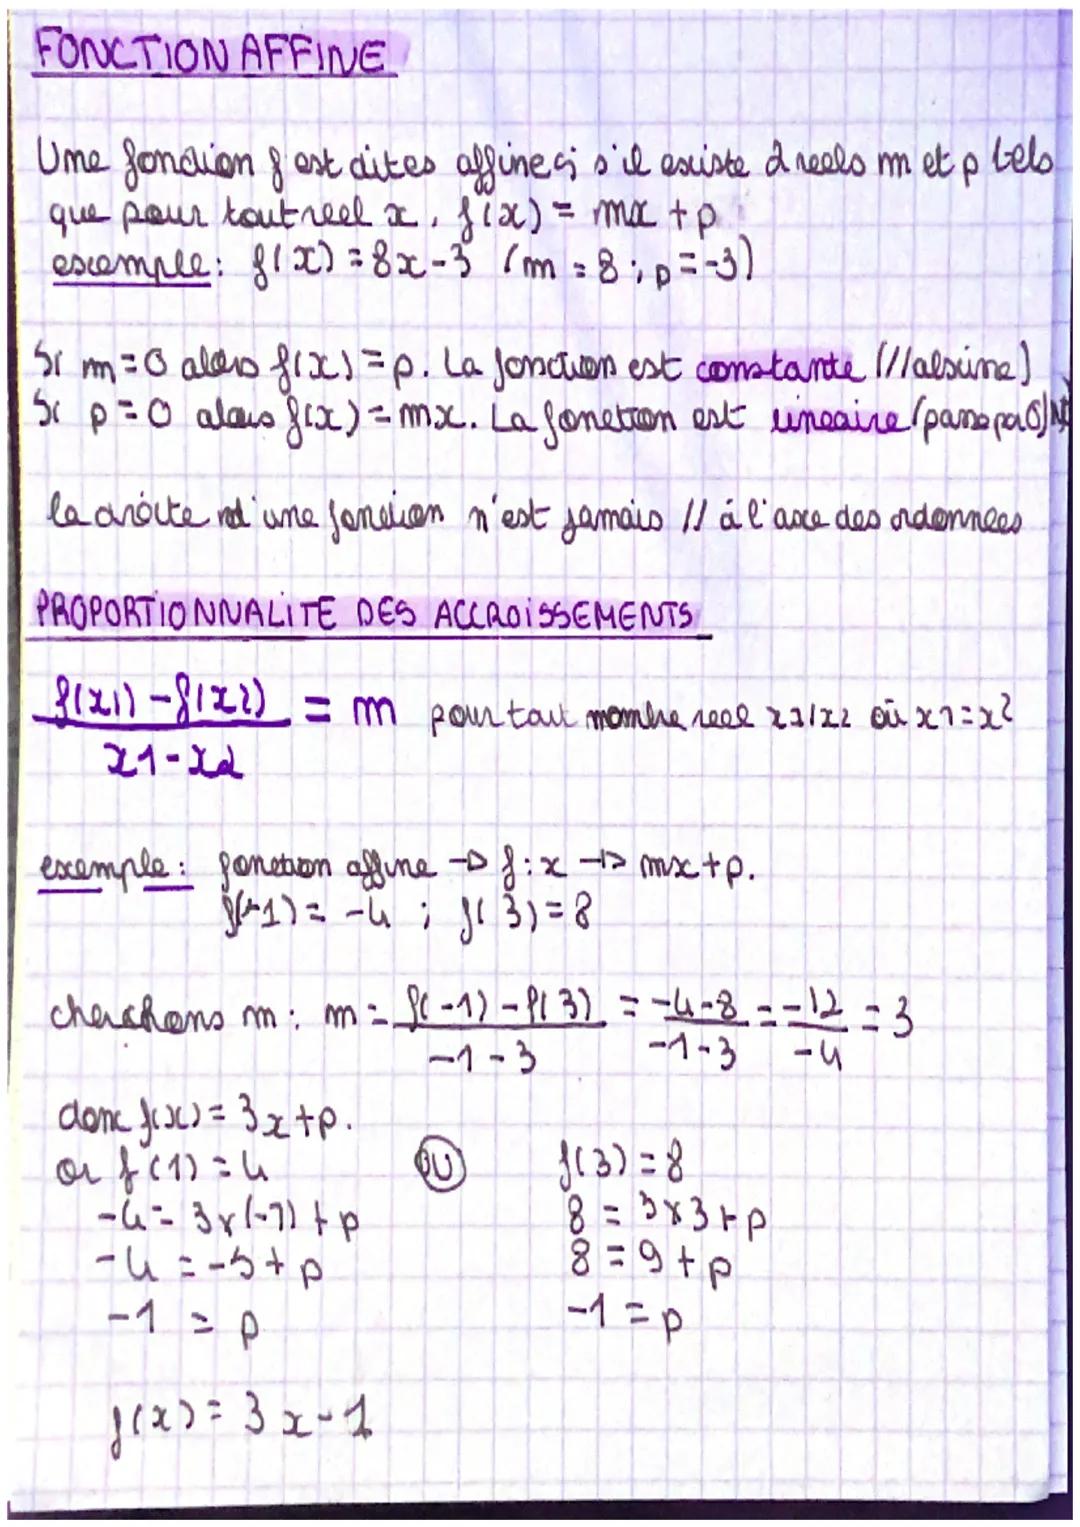 FONCTION AFFINE
Une fonction f est dites affine si s'il existe 2 reels m et p tels
que pour tout reel x, f(x) = mx + p
exemple: f(x) = 8x - 3 (m = 8 ; p = -3)
Si m = 0 alors f(x) = p. La fonction est constante (// abscine)
Si p = 0 alors f(x) = mx. La fonction est lineaire (passe par 0)
la droite d'une fonction n'est jamais // à l'axe des ordonnees
PROPORTIONNALITE DES ACCROISSEMENTS
f(x1) - f(x2) = m pour tout nombre reel x1/x2 où x1 = x2
x1 - x2
exemple: fonction affine → f : x → mx + p.
f(-1) = -4 ; f(3) = 8
cherchons m : m = f(-1) - f(3) = -4-8 = -12 = 3
-1 - 3 -1-3 -4
donc f(x) = 3x + p.
or f(1) = 4 OU f(3) = 8
-4 = 3x(-1) + p 8 = 3x3 + p
-4 = -3 + p 8 = 9 + p
-1 = p -1 = p
f(x) = 3x - 1